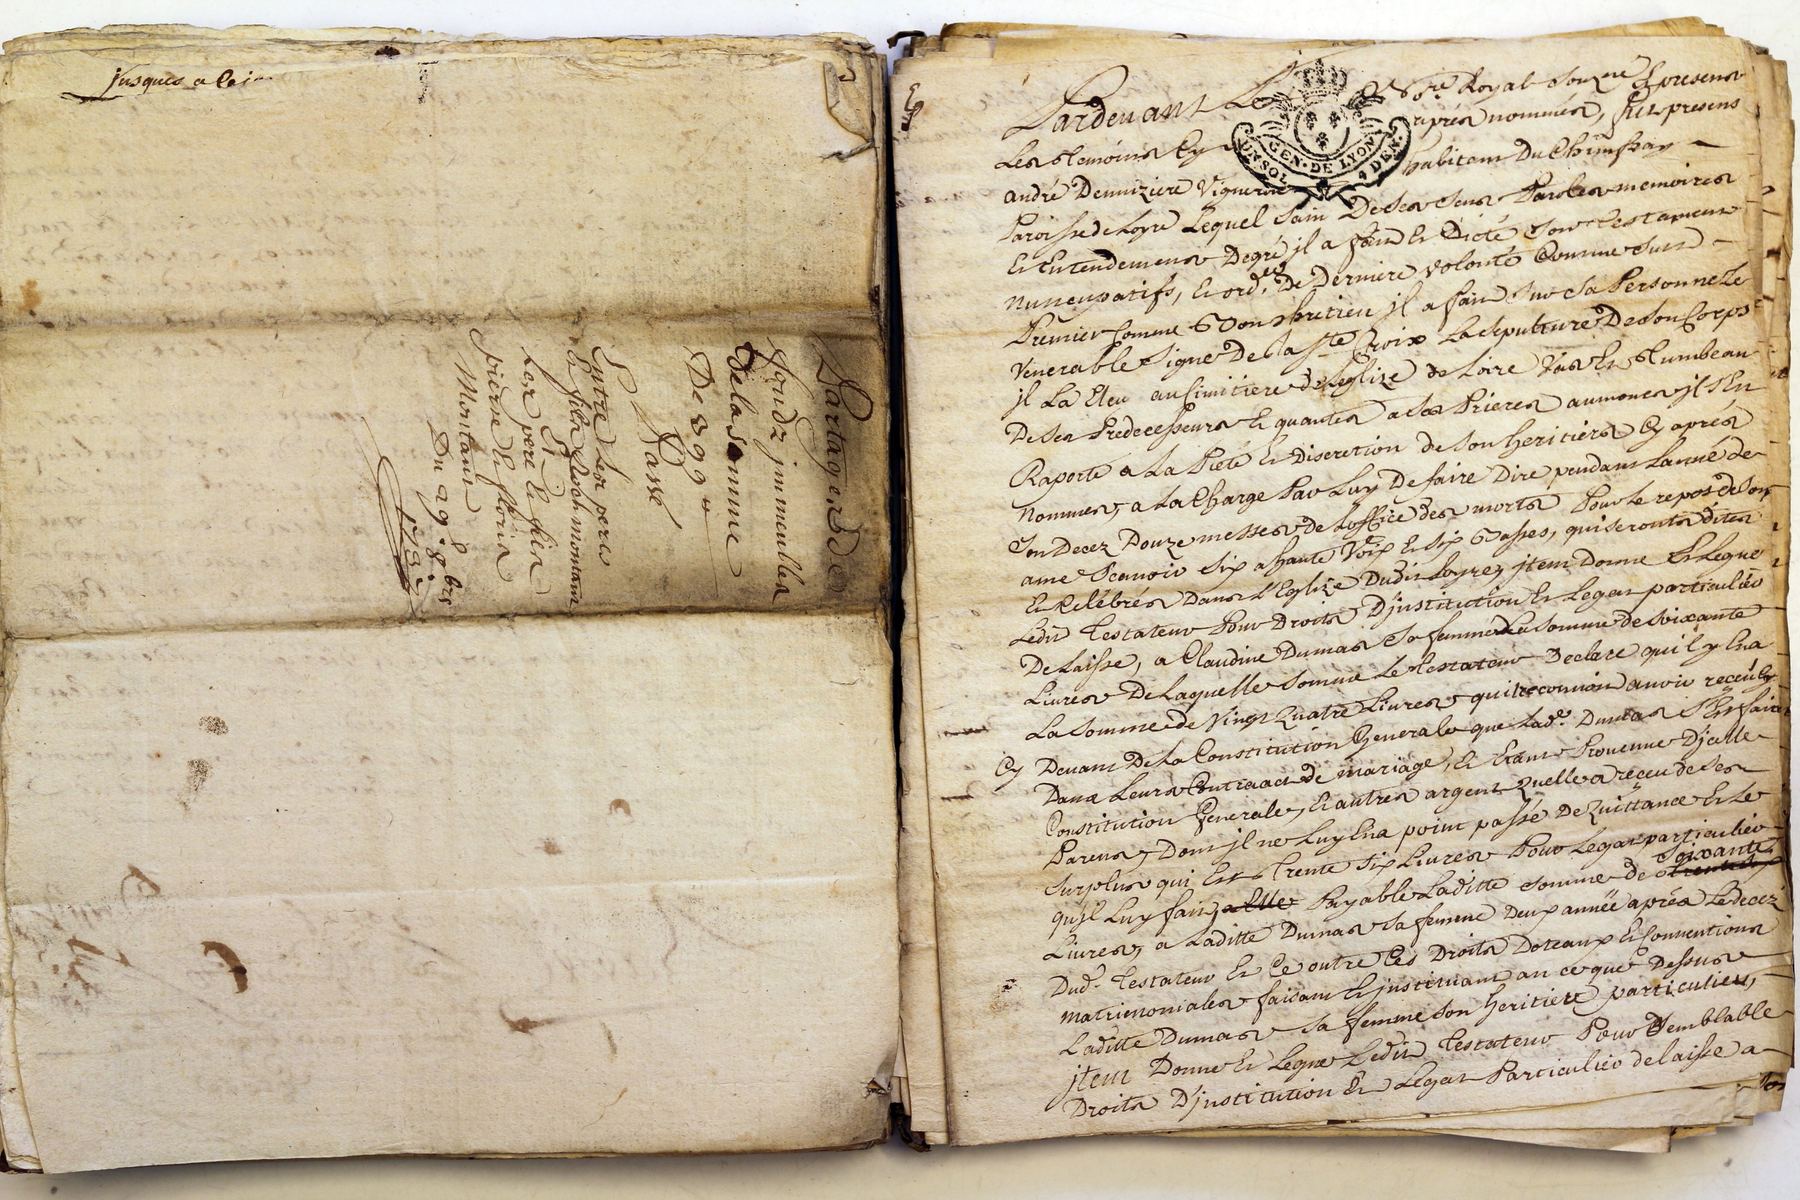 jusques a ce j
Partage de
fondz jmmeubles
de la somme
De 899 ᵗᵗ
Passé
Entre les pere
et fils Roch montant
Les pere et fils
Et
Pierre et fleurie
Montant
Du 29ᵉ 8bre
1732
Pardevant Le Nore Royal Souzné Et presens
Les temoins Cy aprés nommés, fut present
andré Denuiziere Vigneron habitant Du Chinssay
Paroisse de Loyre Lequel Sain De Ses Sens Paroles memoires
Et Entendement Degré jl a fait Et Dicté Son testament
nuncupatifs, Et ordce De Derniere volonté Comme Suit
Premier Comme Bon chretien jl a fait Sur Sa Personne Le
Venerable Signe De la Ste Croix La Sepulture De Son Corps
jl La Eleu au Cimitiere de Leglize de Loire Vas Et tumbeau
De Ses Predecesseurs Et quantes a Ses Prieres aumones jl S'En
Raporte a La Pieté Et Discretion de Son heritiers Cy aprés
nommes, a La Charge Par Luy De faire Dire pendant Lanné de
Son Decez Douze messes de Loffice des morts Pour Le repos de Son
ame Scavoir Six a haute Voix Et Six Basses, qui seronts dites
Et Celébrés Dans L'Eglize Dudit Loyre, jtem Donne Et Legue
Ledit Testateur Pour Droits D'justitution Et Legat particulier
De Laisse, a Claudine Dumas Sa femme La Somme de Soixante
Livres De Laquelle Somme Le Testateur Declare qui l y En a
La Somme de Vingt Quatre Livres qu'il reconnoit avoir reçeu Cy
Cy Devant De La Constitution Generale que Lade Dumas S'Est faite
Dans Leurs Contraact de mariage, Et Etant Provenue D'jcelle
Constitution Generale, Et autres argent Quelle a reçeu de Ses
Parens, Dont jl ne Luy En a point passé De Quittance Et Le
Surplus qui Est Trente Six Livres Pour Legat particulier
qu'jl Luy fait, a Elle Payable Laditte Somme de Soixante
Livres, a Laditte Dumas Sa femme Deux année aprés Le decez
Dud. Testateur Et Ce outre Ces Droits Doteaux Et Conventions
matrimoniales faisant Et justituant an ce que Dessus
Laditte Dumas Sa femme Son heritiere particuliere,
jtem Donne Et Legue Ledit Testateur Pour Semblable
Droits D'justitution Et Legat Particulier delaisse a
GEN. DE LYON
UN SOL 4 DEN.